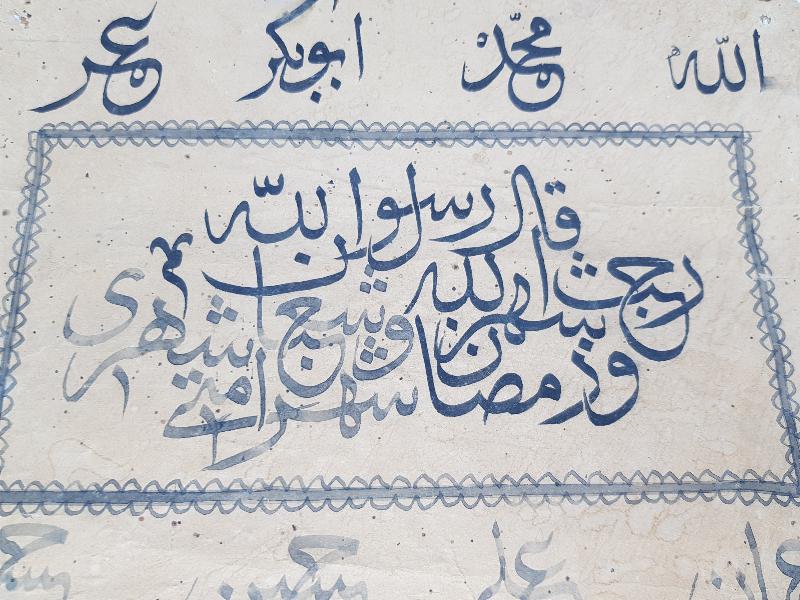 الله محمد ابوبكر عمر
قال رسول الله
رجب شهر الله وشعبان شهرى
ورمضان شهر امتى
على حسين